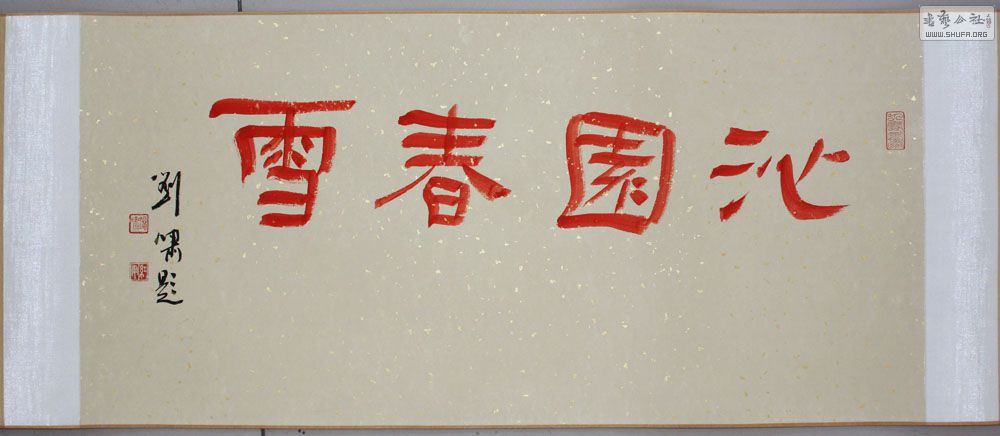 沁園春雪
劉嘯題
书艺公社
WWW.SHUFA.ORG